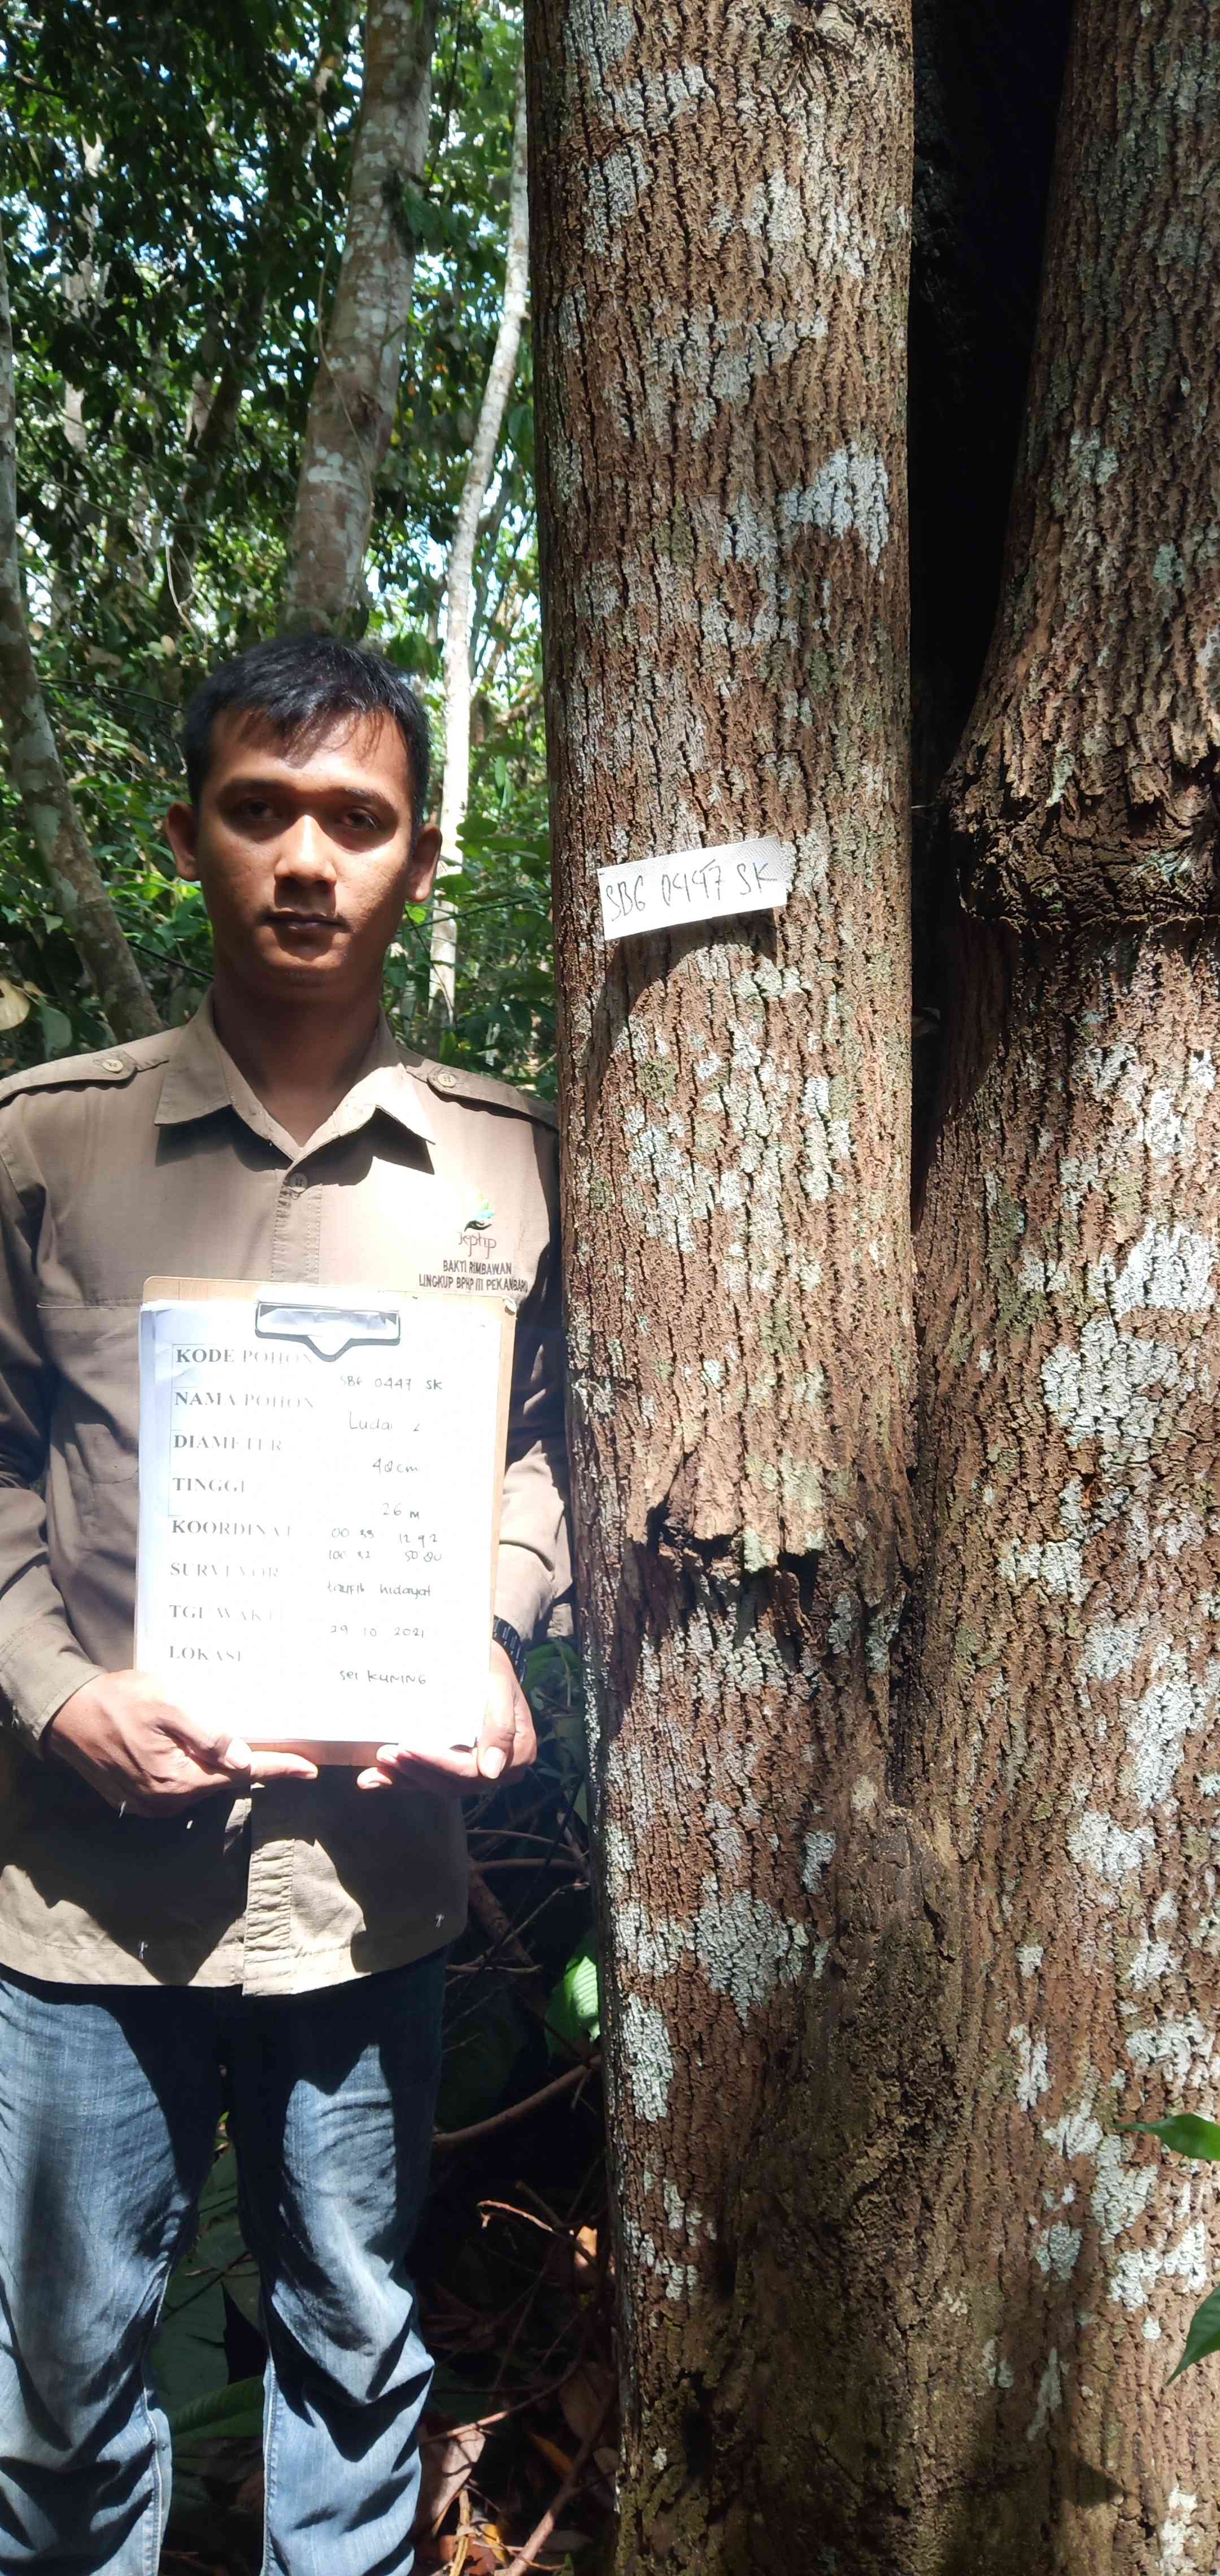 SBG 0447 SK
kphp
BAKTI RIMBAWAN
LINGKUP BPHP III PEKANBARU
KODE POHON
SBG 0447 SK
NAMA POHON
Ludai 2
DIAMETER
cm
TINGGI
26 m
KOORDINAT
00
100 32
SURVEYOR
taufik hidayat
TGL WAKT
29 10 2021
LOKASI
sei KUNING